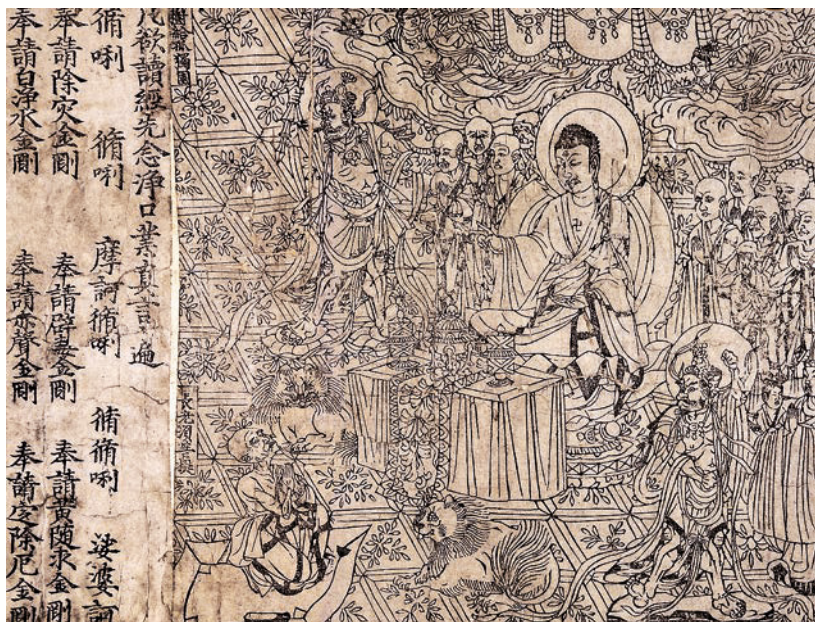 樹給孤獨園
長老須菩提
凡欲讀經先念淨口業真言一遍
脩唎 脩唎 摩訶脩唎 脩脩唎 娑婆訶
奉請除灾金剛 奉請辟毒金剛 奉請黃随求金剛
奉請白淨水金剛 奉請赤聲金剛 奉請定除厄金剛